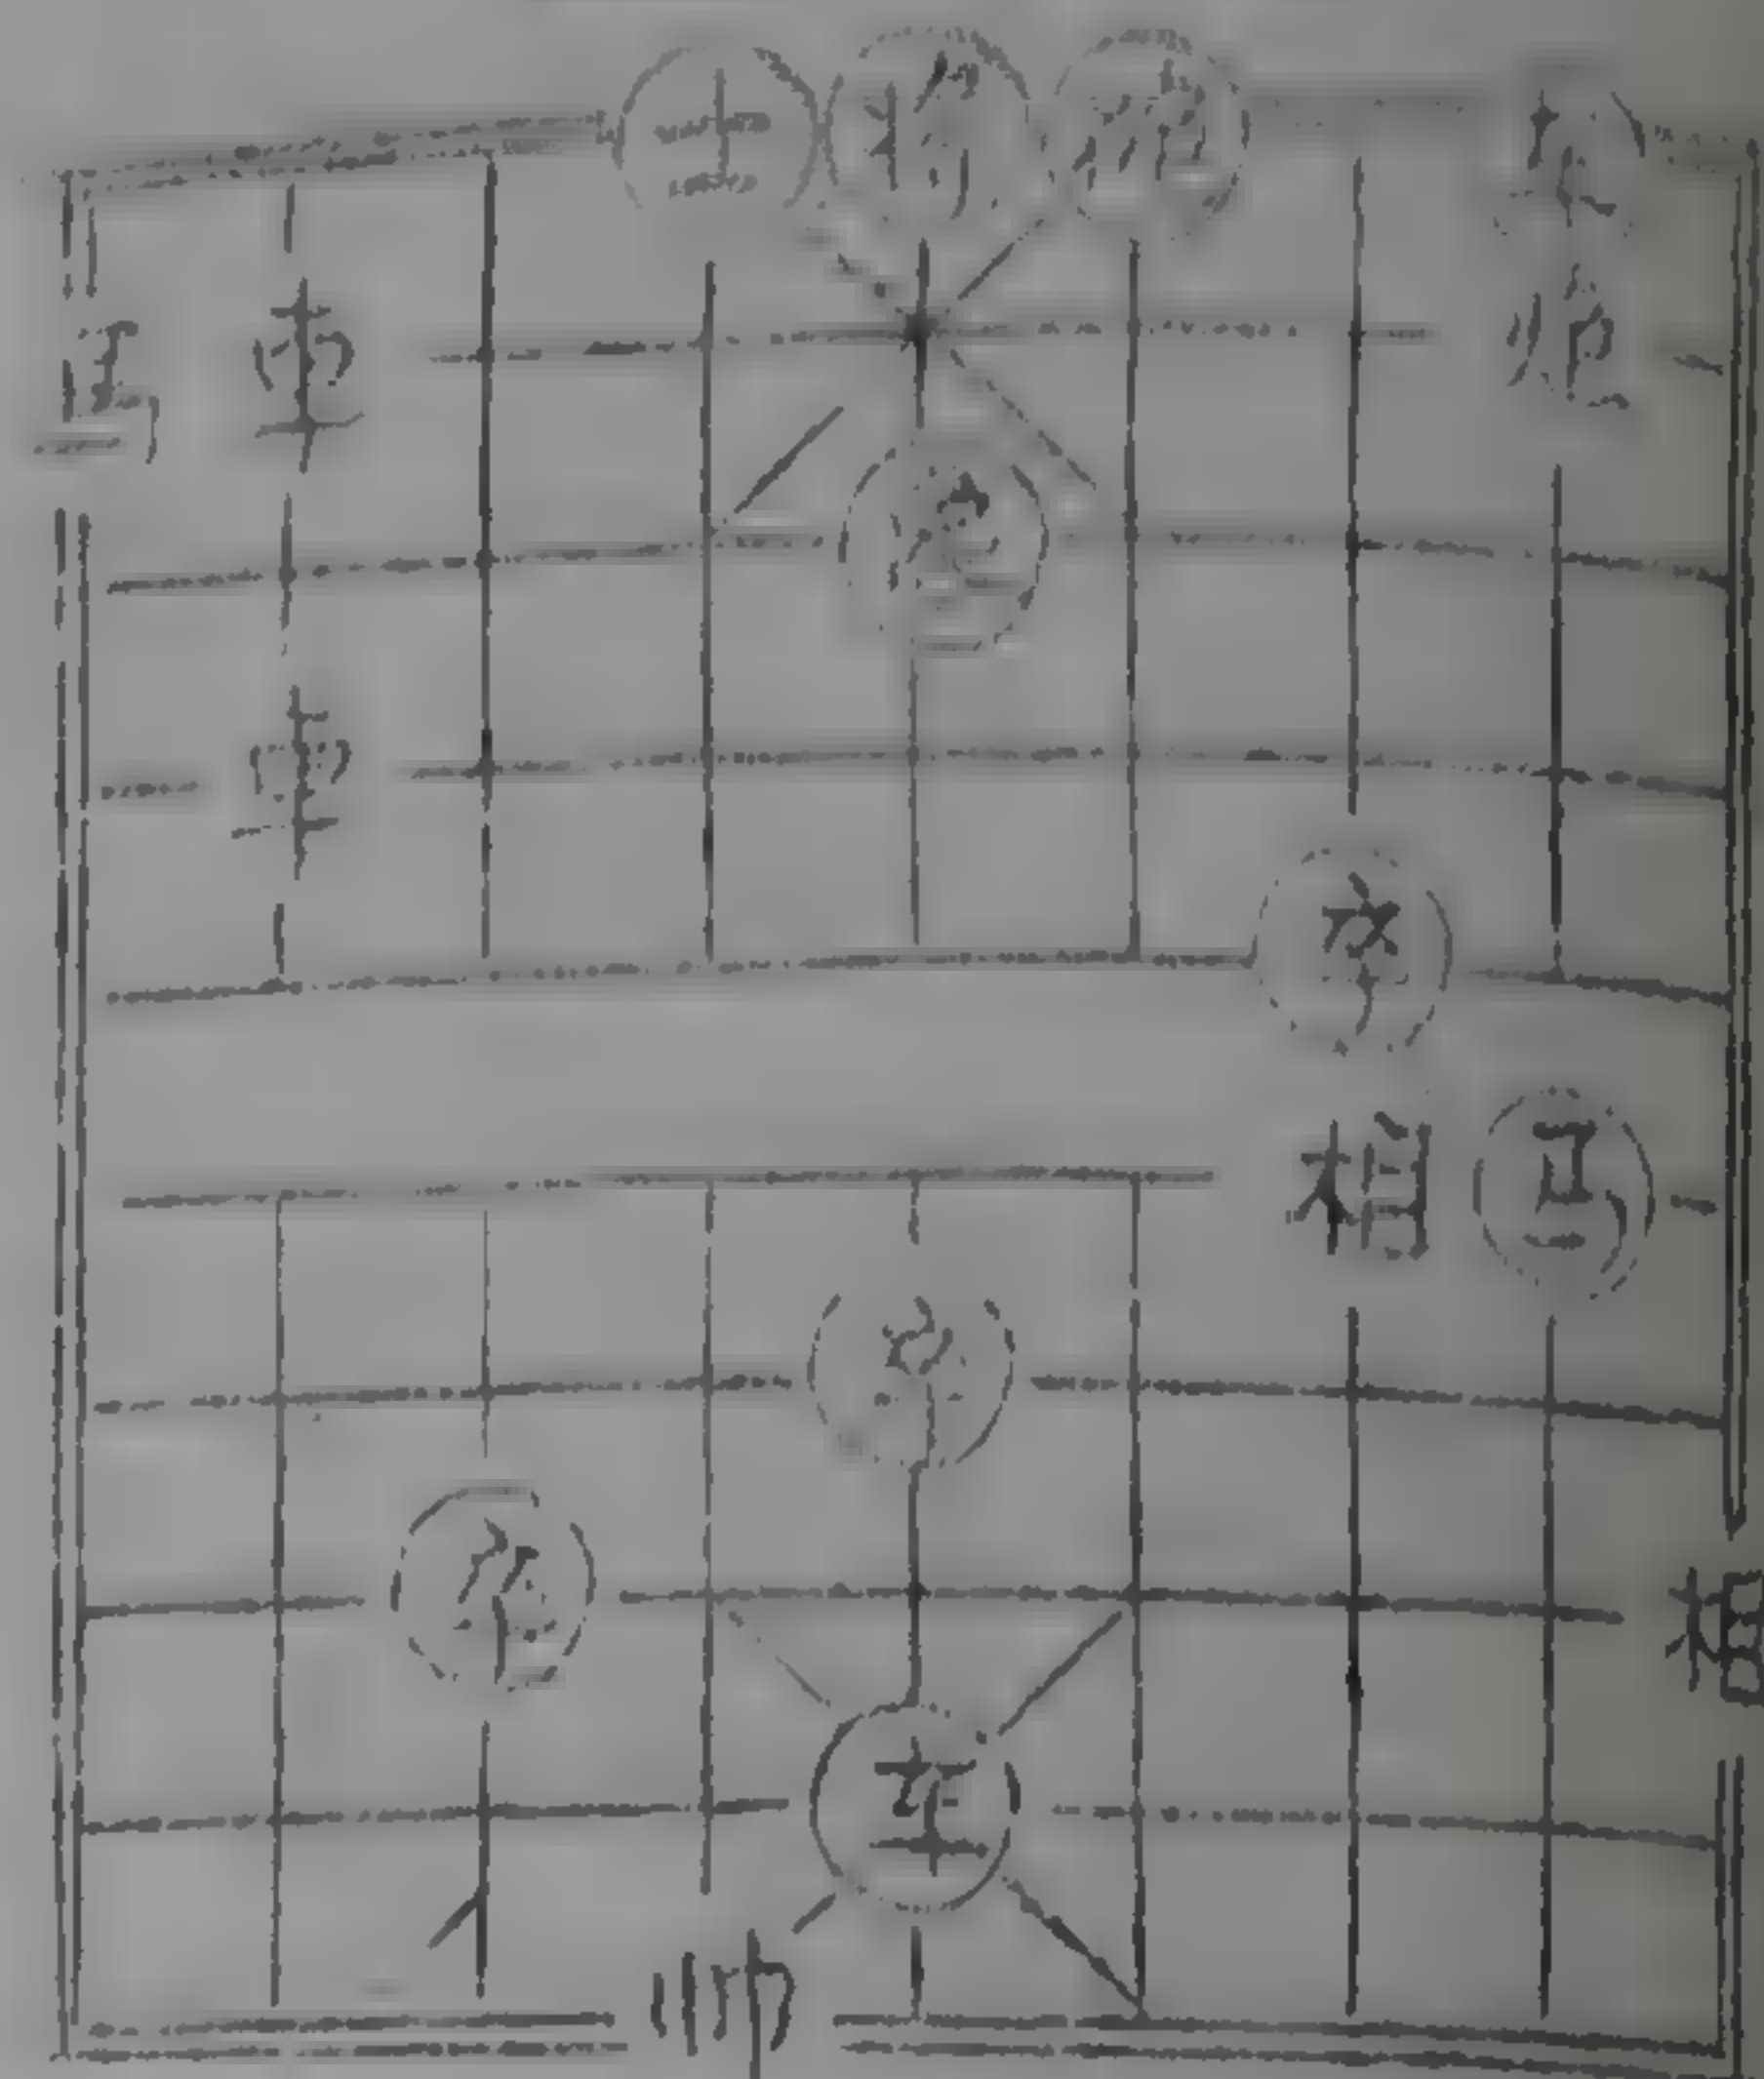 士 將
馬 車 炮
車
卒
相 馬
卒
卒
相
車
帥